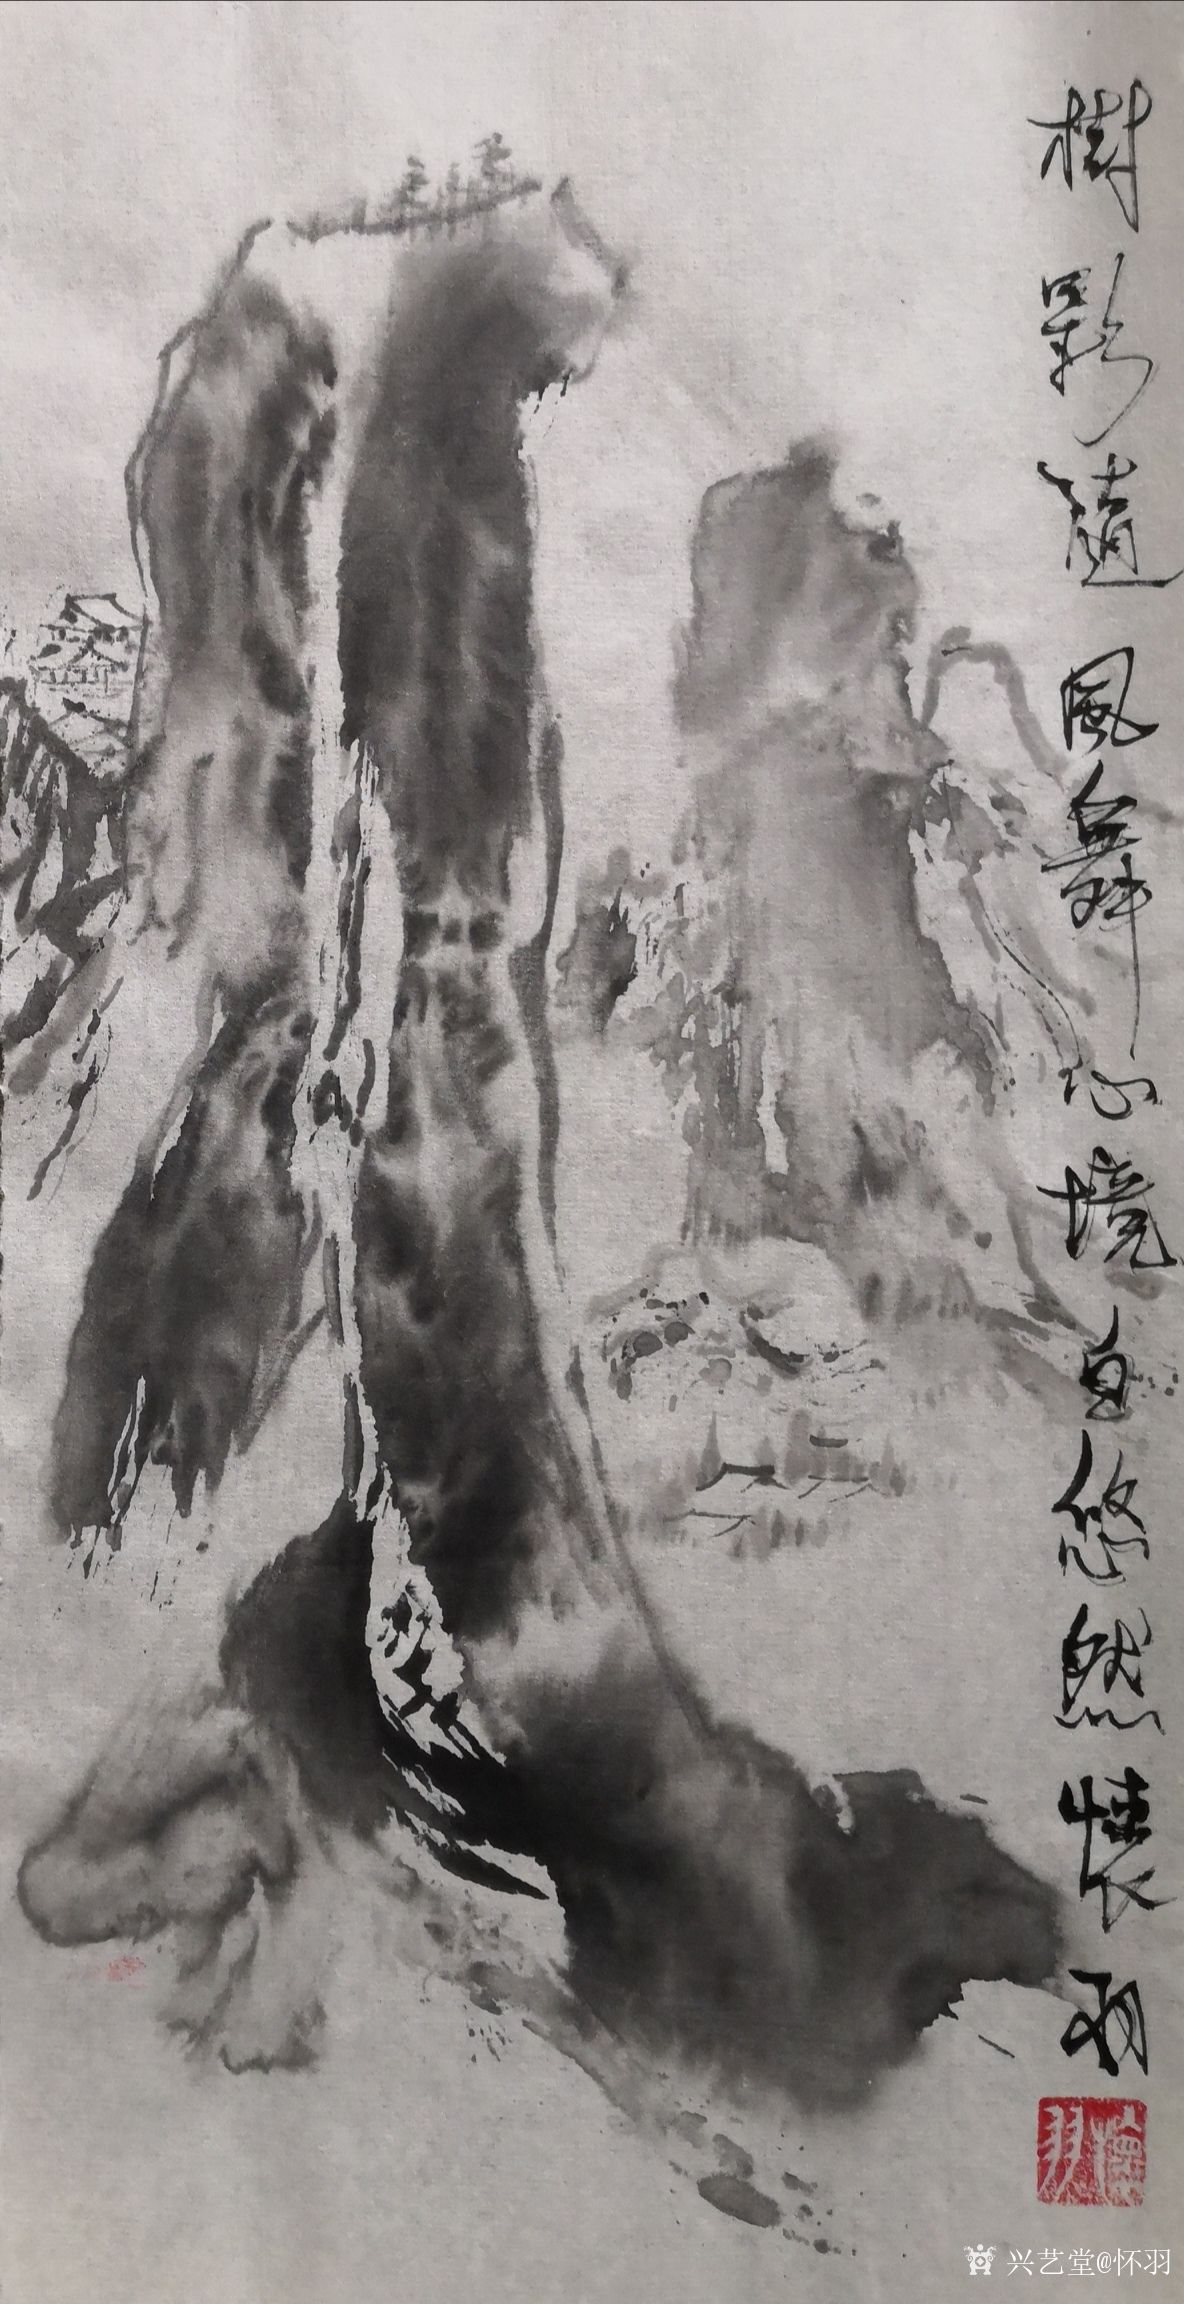 樹影隨風舞心境自悠然懷羽
懷羽
兴艺堂@怀羽